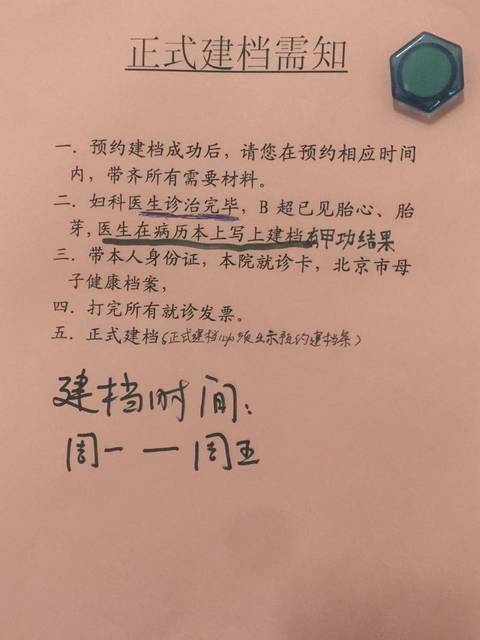 正式建档需知
一．预约建档成功后，请您在预约相应时间
内，带齐所有需要材料。
二．妇科医生诊治完毕，B 超已见胎心、胎
芽,医生在病历本上写上建档有甲功结果
三．带本人身份证，本院就诊卡，北京市母
子健康档案，
四．打完所有就诊发票。
五．正式建档(正式建档必须出示预约建档条)
建档时间：
周一 — 周五